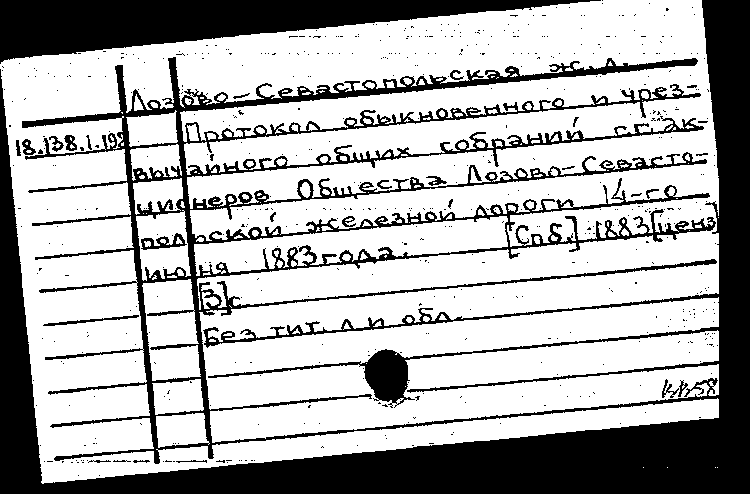 Лозово-Севастопольская ж. д.
18.138.1.192 Протокол обыкновенного и чрез-
вычайного общих собраний г.г. ак-
ционеров Общества Лозово-Севасто-
польской железной дороги 14-го
июня 1883 года. [Спб.] 1883 [ценз]
[3] с.
Без тит. л. и обл.